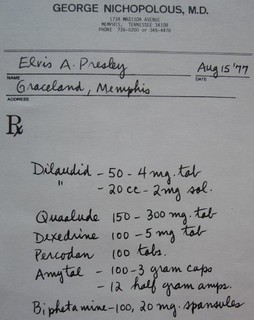 GEORGE NICHOPOLOUS, M.D.
1734 MADISON AVENUE
MEMPHIS, TENNESSEE 38104
PHONE
Elvis A. Presley Aug 15 '77
NAME DATE
Graceland, Memphis
ADDRESS
Rx
Dilaudid - 50 - 4 mg. tab
" - 20 cc - 2 mg sol.
Quaalude 150 - 300 mg. tab
Dexedrine 100 - 5 mg tab
Percodan 100 tabs.
Amytal - 100 - 3 gram caps
- 12 half gram amps.
Biphetamine - 100, 20 mg. spansules